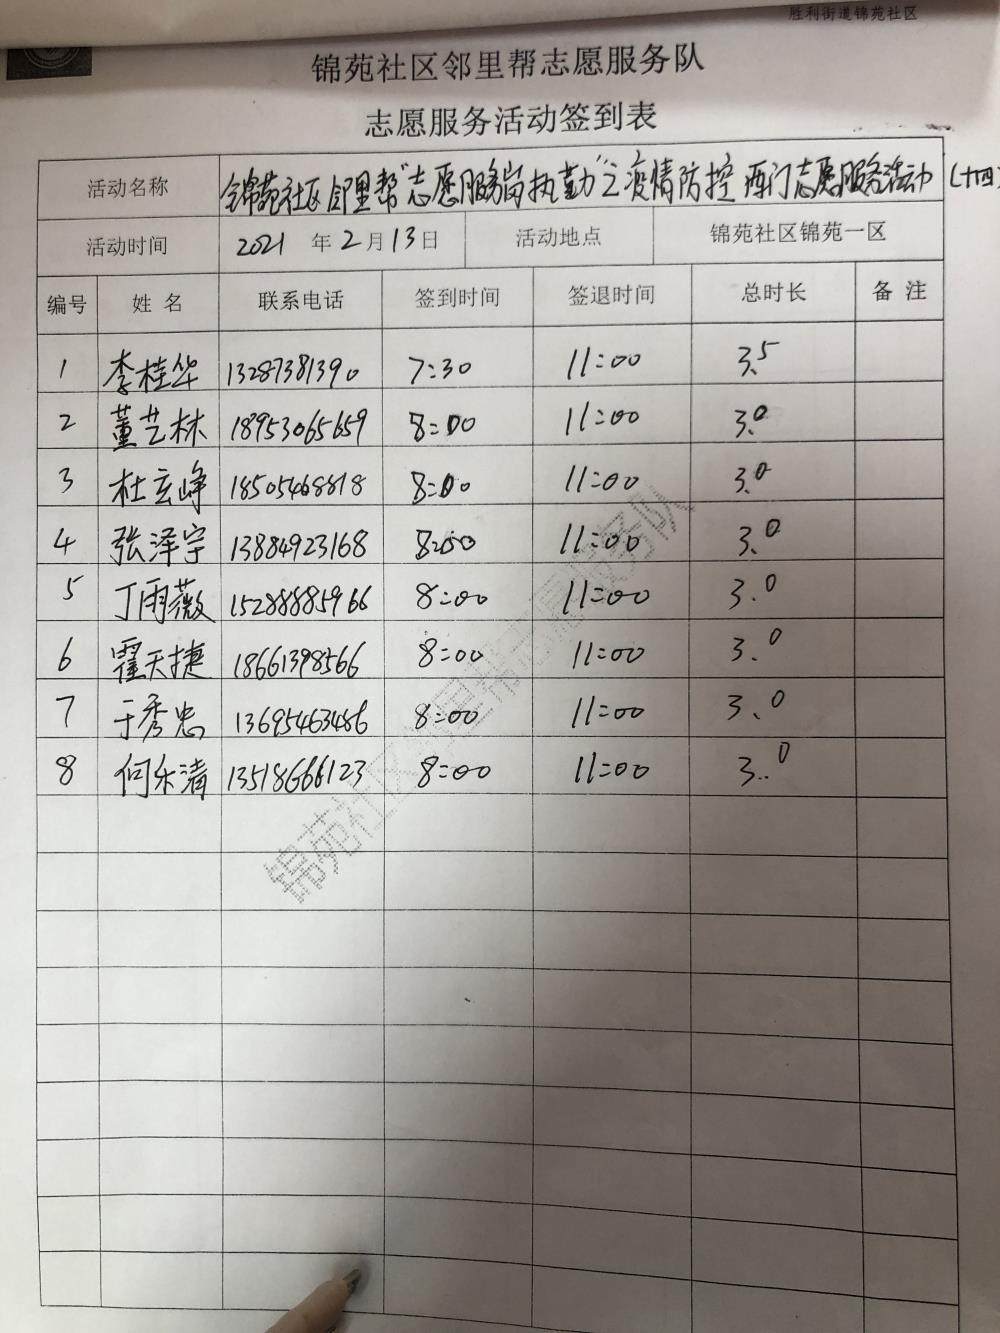 胜利街道锦苑社区
锦苑社区邻里帮志愿服务队
志愿服务活动签到表
活动名称 锦苑社区邻里帮"志愿服务岗执勤"之疫情防控西门志愿服务活动(十四)
活动时间 2021 年 2 月 13 日 活动地点 锦苑社区锦苑一区
编号 姓名 联系电话 签到时间 签退时间 总时长 备注
1 李桂华 13287381390 7:30 11:00 3.5
2 董艺林 18953065659 8:00 11:00 3.0
3 杜玄峥 18505468818 8:00 11:00 3.0
4 张泽宇 13884923168 8:00 11:00 3.0
5 丁雨薇 15288885966 8:00 11:00 3.0
6 霍天捷 18661398566 8:00 11:00 3.0
7 于秀忠 13695463486 8:00 11:00 3.0
8 何乐清 13518666123 8:00 11:00 3.0
锦苑社区邻里帮志愿服务队